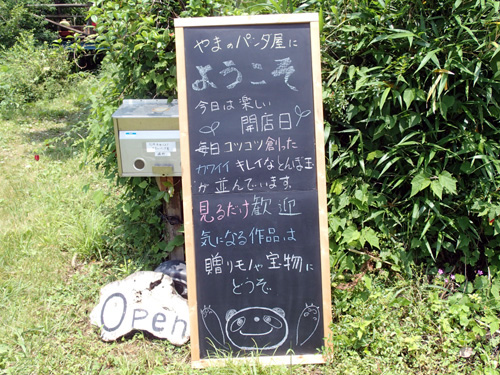 やまのパンタ屋に
ようこそ
今日は楽しい
開店日
毎日コツコツ創った
カワイイ キレイなとんぼ玉
が並んでいます。
見るだけ歓迎
気になる作品は
贈りモノや宝物に
どうぞ
Open